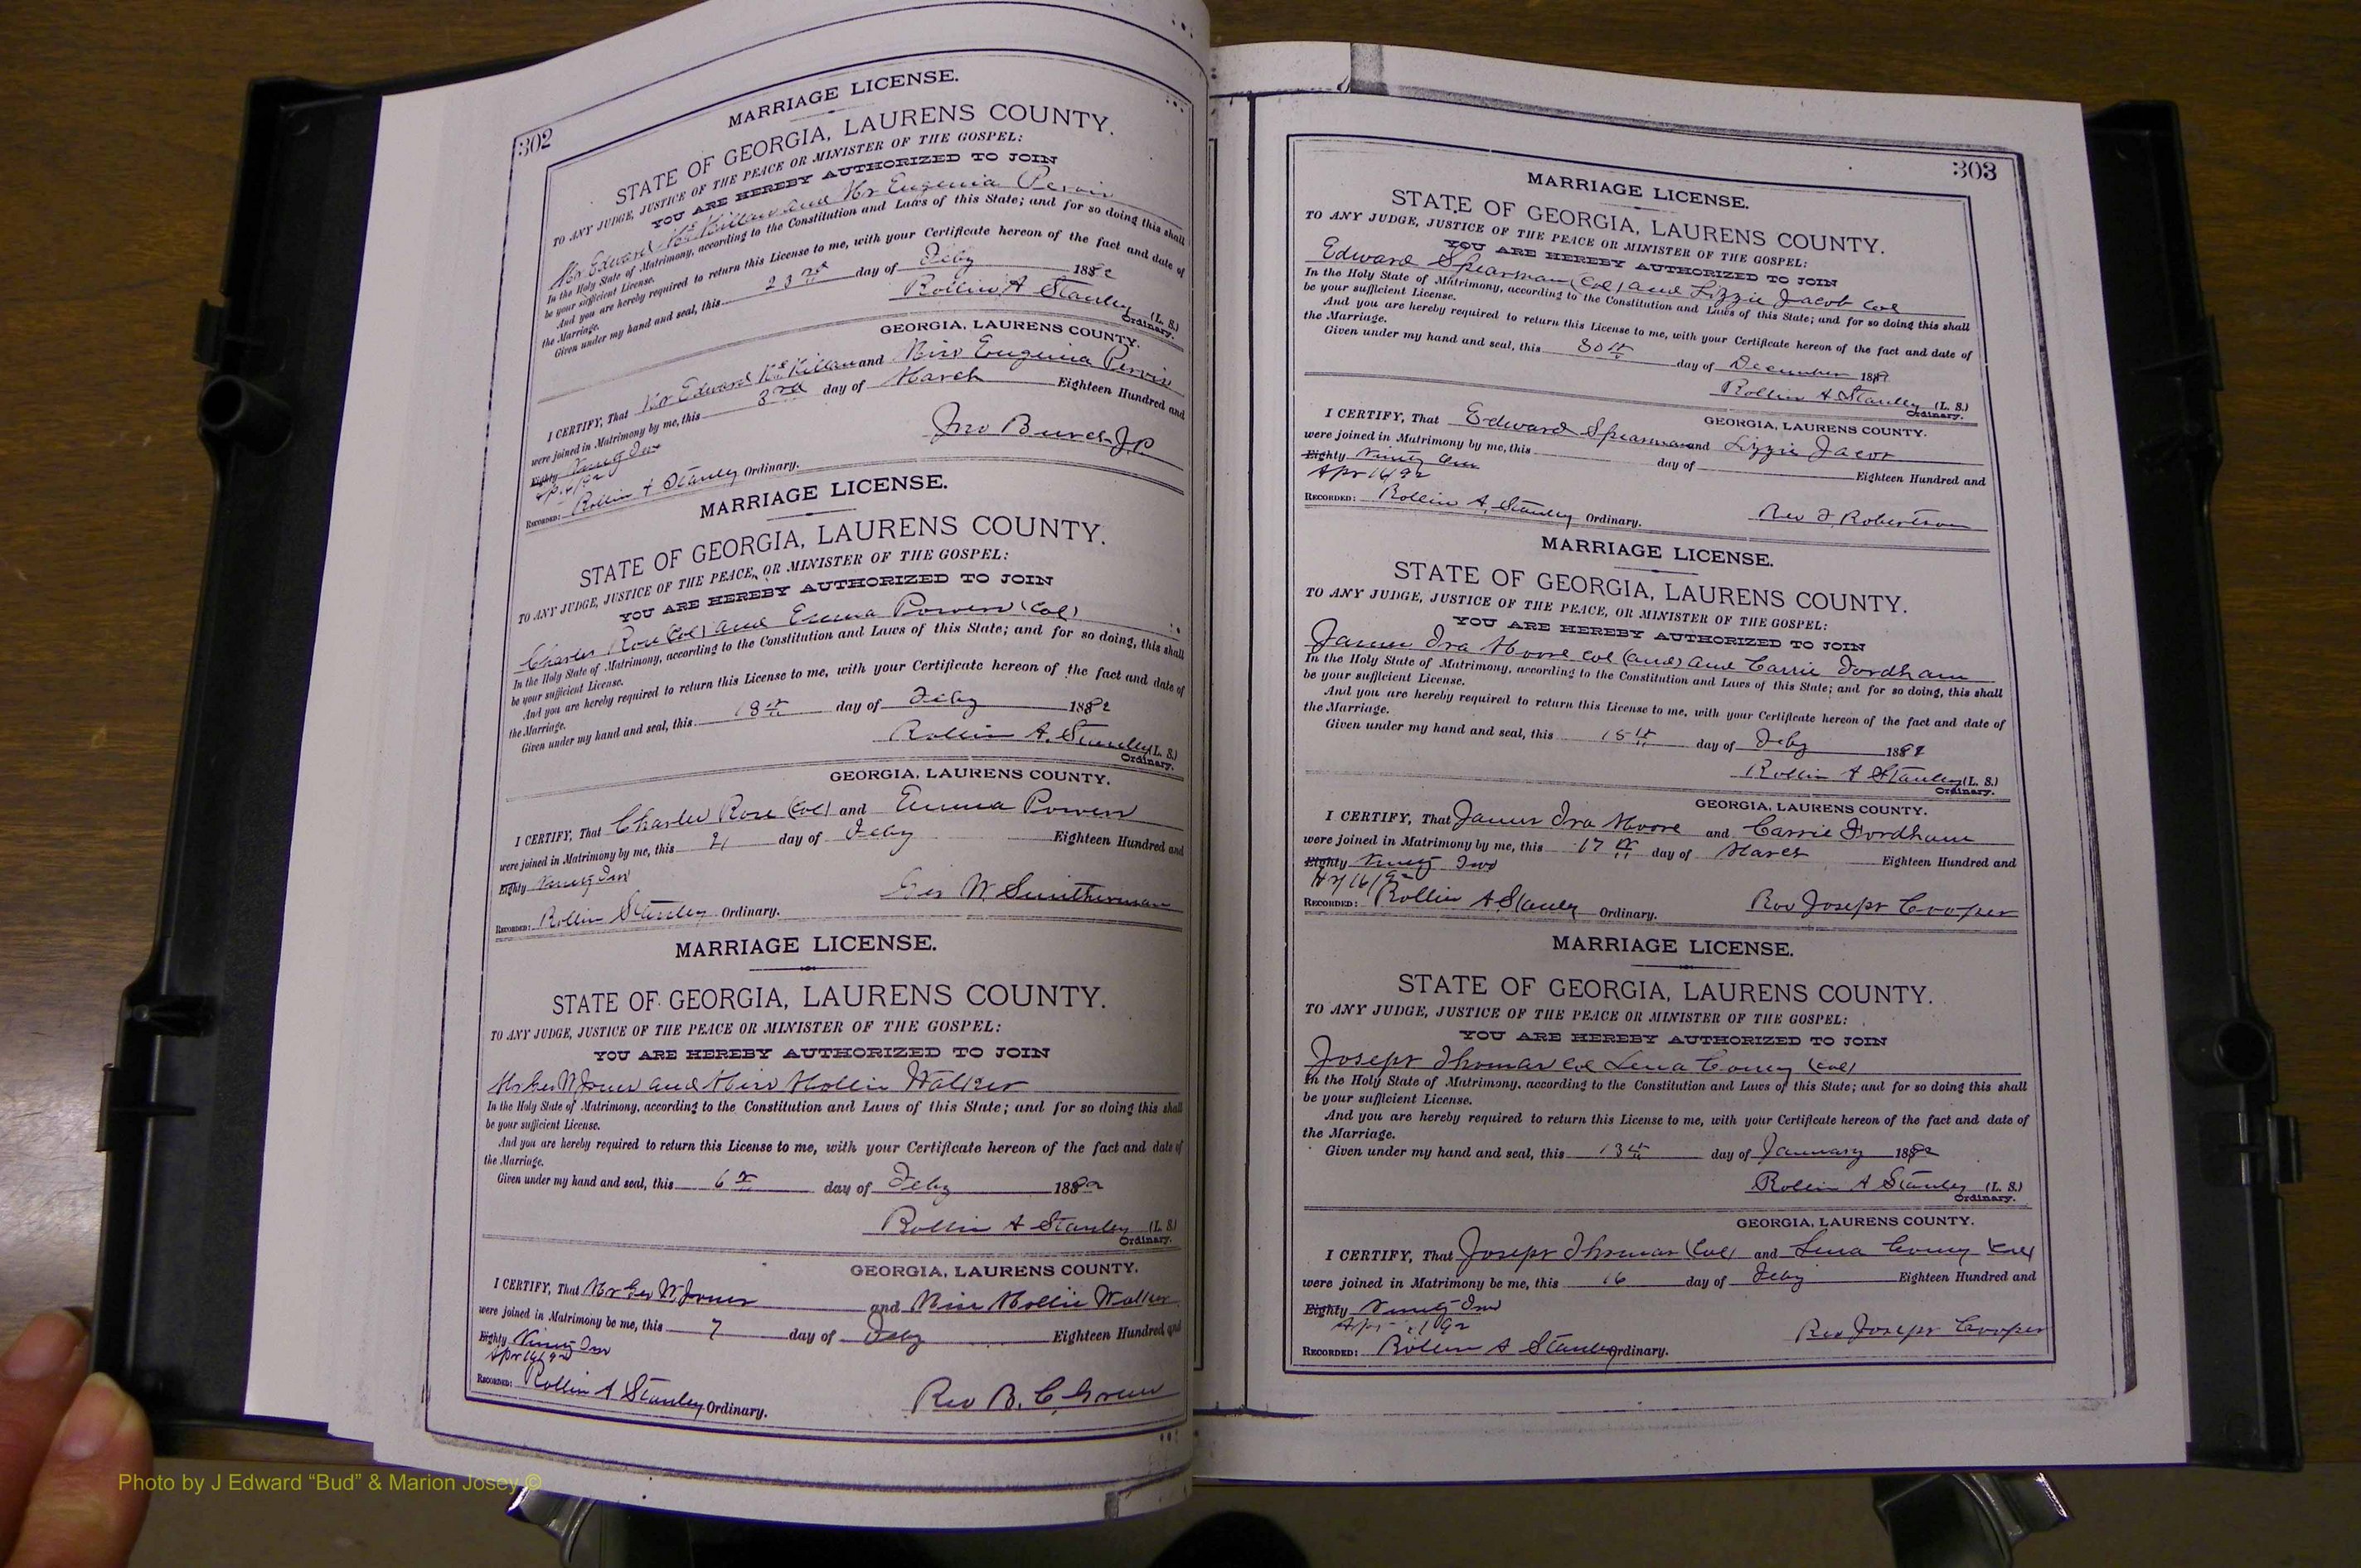 302
MARRIAGE LICENSE.
STATE OF GEORGIA, LAURENS COUNTY.
TO ANY JUDGE, JUSTICE OF THE PEACE OR MINISTER OF THE GOSPEL:
YOU ARE HEREBY AUTHORIZED TO JOIN
Mr Edward McKillan and Mr Eugenia
In the Holy State of Matrimony, according to the Constitution and Laws of this State; and for so doing this shall
be your sufficient License.
And you are hereby required to return this License to me, with your Certificate hereon of the fact and date of
the Marriage.
Given under my hand and seal, this 23rd day of Feby 188
Rollin A Stanley (L. S.)
Ordinary.
GEORGIA, LAURENS COUNTY.
I CERTIFY, That Mr Edward McKillan and Miss Eugenia
were joined in Matrimony by me, this 3rd day of March Eighteen Hundred and
Eighty Ninety Two
Jno Burch J.P
Apr 14/92
RECORDED: Rollin A Stanley Ordinary.
MARRIAGE LICENSE.
STATE OF GEORGIA, LAURENS COUNTY.
TO ANY JUDGE, JUSTICE OF THE PEACE, OR MINISTER OF THE GOSPEL:
YOU ARE HEREBY AUTHORIZED TO JOIN
Charles Rose (Col) and Emma Powers (Col)
In the Holy State of Matrimony, according to the Constitution and Laws of this State; and for so doing, this shall
be your sufficient License.
And you are hereby required to return this License to me, with your Certificate hereon of the fact and date of
the Marriage.
Given under my hand and seal, this 18th day of Feby 1882
Rollin A. Stanley (L. S.)
Ordinary.
GEORGIA, LAURENS COUNTY.
I CERTIFY, That Charles Rose (Col) and Emma Powers
were joined in Matrimony by me, this 21 day of Feby Eighteen Hundred and
Eighty Ninety Two
Geo W. Smitherman
RECORDED: Rollin Stanley Ordinary.
MARRIAGE LICENSE.
STATE OF GEORGIA, LAURENS COUNTY.
TO ANY JUDGE, JUSTICE OF THE PEACE OR MINISTER OF THE GOSPEL:
YOU ARE HEREBY AUTHORIZED TO JOIN
Mr Geo W Jones and Miss Mollie Walker
In the Holy State of Matrimony, according to the Constitution and Laws of this State; and for so doing this shall
be your sufficient License.
And you are hereby required to return this License to me, with your Certificate hereon of the fact and date of
the Marriage.
Given under my hand and seal, this 6th day of Feby 1892
Rollin A Stanley (L. S.)
Ordinary.
GEORGIA, LAURENS COUNTY.
I CERTIFY, That Mr Geo W Jones and Miss Mollie Walker
were joined in Matrimony be me, this 7 day of Feby Eighteen Hundred and
Eighty Ninety Two
Apr 14/92
RECORDED: Rollin A Stanley Ordinary.
Rev B. C. Green
303
MARRIAGE LICENSE.
STATE OF GEORGIA, LAURENS COUNTY.
TO ANY JUDGE, JUSTICE OF THE PEACE OR MINISTER OF THE GOSPEL:
YOU ARE HEREBY AUTHORIZED TO JOIN
Edward Spearman (Col) and Lizzie Jacob Col
In the Holy State of Matrimony, according to the Constitution and Laws of this State; and for so doing this shall
be your sufficient License.
And you are hereby required to return this License to me, with your Certificate hereon of the fact and date of
the Marriage.
Given under my hand and seal, this 30th day of December 189
Rollin A Stanley (L. S.)
Ordinary.
GEORGIA, LAURENS COUNTY.
I CERTIFY, That Edward Spearman and Lizzie Jacob
were joined in Matrimony by me, this day of Eighteen Hundred and
Eighty Ninety One
Apr 16/92
RECORDED: Rollin A. Stanley Ordinary.
Rev J Robertson
MARRIAGE LICENSE.
STATE OF GEORGIA, LAURENS COUNTY.
TO ANY JUDGE, JUSTICE OF THE PEACE, OR MINISTER OF THE GOSPEL:
YOU ARE HEREBY AUTHORIZED TO JOIN
James Ira Moore Col (and) and Carrie Fordham
In the Holy State of Matrimony, according to the Constitution and Laws of this State; and for so doing, this shall
be your sufficient License.
And you are hereby required to return this License to me, with your Certificate hereon of the fact and date of
the Marriage.
Given under my hand and seal, this 15th day of Feby 189
Rollin A Stanley (L. S.)
Ordinary.
GEORGIA, LAURENS COUNTY.
I CERTIFY, That James Ira Moore and Carrie Fordham
were joined in Matrimony by me, this 17th day of March Eighteen Hundred and
Eighty Ninety Two
16/92
RECORDED: Rollin A Stanley Ordinary.
Rev Joseph Cooper
MARRIAGE LICENSE.
STATE OF GEORGIA, LAURENS COUNTY.
TO ANY JUDGE, JUSTICE OF THE PEACE OR MINISTER OF THE GOSPEL:
YOU ARE HEREBY AUTHORIZED TO JOIN
Joseph Thomas Col Lena Coney (Col)
In the Holy State of Matrimony, according to the Constitution and Laws of this State; and for so doing this shall
be your sufficient License.
And you are hereby required to return this License to me, with your Certificate hereon of the fact and date of
the Marriage.
Given under my hand and seal, this 13th day of January 1892
Rollin A Stanley (L. S.)
Ordinary.
GEORGIA, LAURENS COUNTY.
I CERTIFY, That Joseph Thomas (Col) and Lena Coney (Col)
were joined in Matrimony be me, this 16 day of Feby Eighteen Hundred and
Eighty Ninety Two
Rev Joseph Cooper
RECORDED: Rollin A Stanley Ordinary.
Photo by J Edward “Bud” & Marion Josey ©